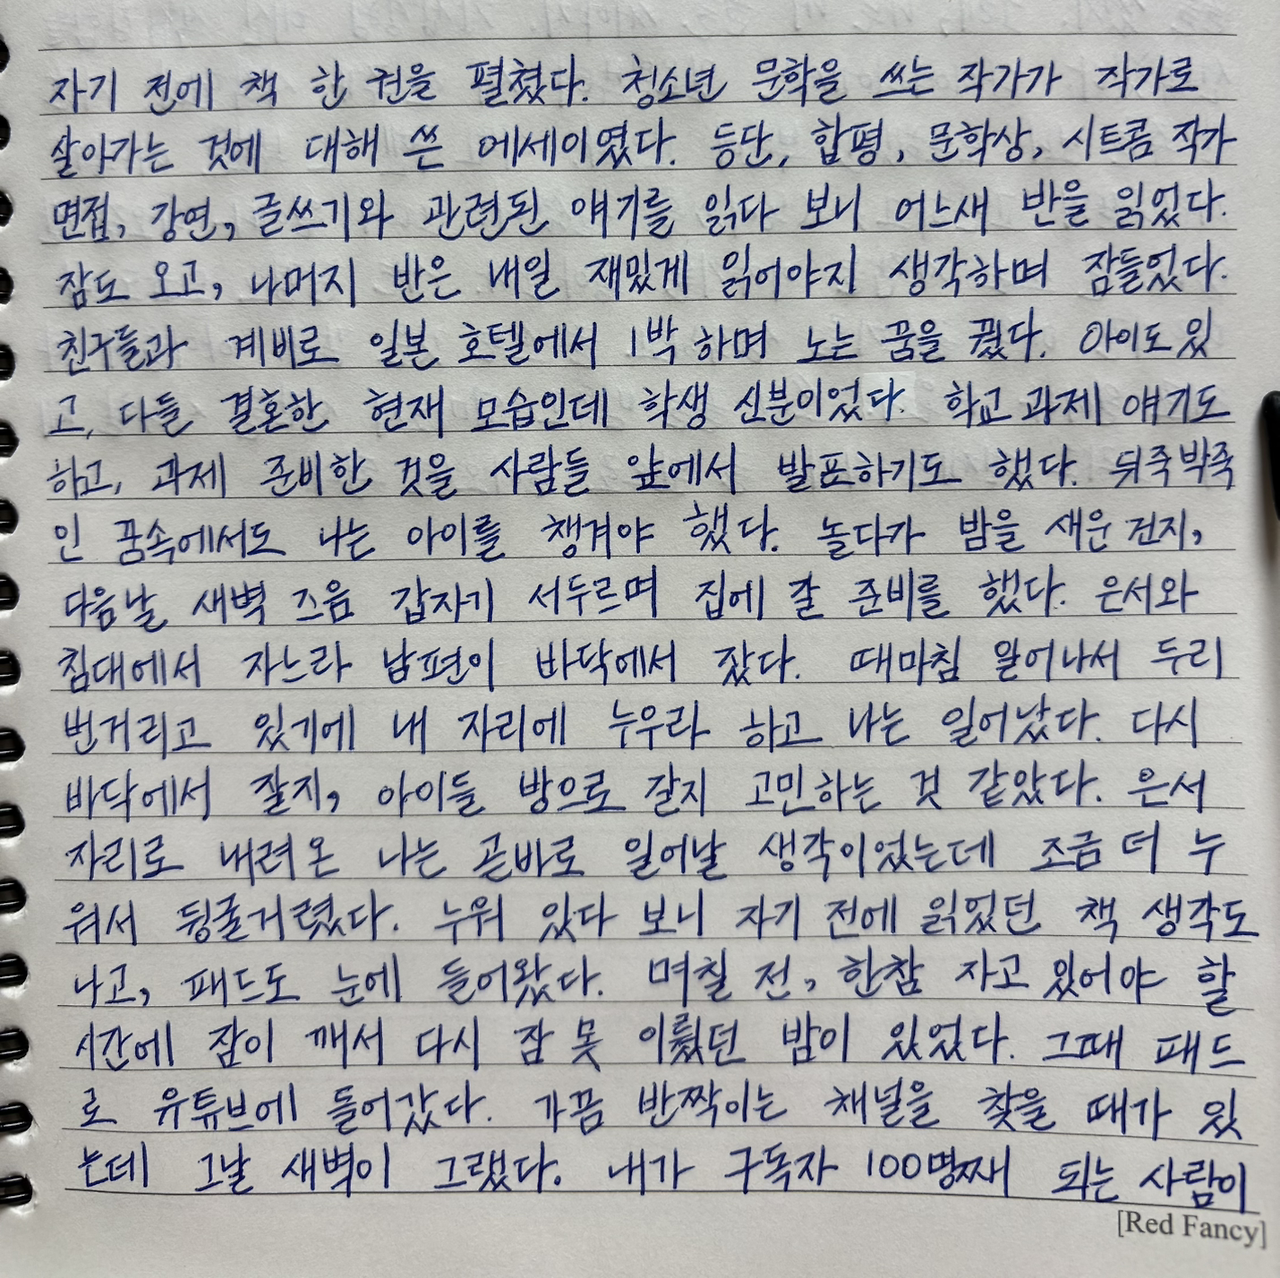 자기 전에 책 한 권을 펼쳤다. 청소년 문학을 쓰는 작가가 작가로
살아가는 것에 대해 쓴 에세이였다. 등단, 합평, 문학상, 시트콤 작가
면접, 강연, 글쓰기와 관련된 얘기를 읽다 보니 어느새 반을 읽었다.
잠도 오고, 나머지 반은 내일 재밌게 읽어야지 생각하며 잠들었다.
친구들과 계비로 일본 호텔에서 1박 하며 노는 꿈을 꿨다. 아이도 있
고, 다들 결혼한 현재 모습인데 학생 신분이었다. 학교 과제 얘기도
하고, 과제 준비한 것을 사람들 앞에서 발표하기도 했다. 뒤죽박죽
인 꿈속에서도 나는 아이를 챙겨야 했다. 놀다가 밤을 새운 건지,
다음날 새벽 즈음 갑자기 서두르며 집에 갈 준비를 했다. 은서와
침대에서 자느라 남편이 바닥에서 잤다. 때마침 일어나서 두리
번거리고 있기에 내 자리에 누우라 하고 나는 일어났다. 다시
바닥에서 잘지, 아이들 방으로 갈지 고민하는 것 같았다. 은서
자리로 내려온 나는 곧바로 일어날 생각이었는데 조금 더 누
워서 뒹굴거렸다. 누워 있다 보니 자기 전에 읽었던 책 생각도
나고, 패드도 눈에 들어왔다. 며칠 전, 한참 자고 있어야 할
시간에 잠이 깨서 다시 잠 못 이뤘던 밤이 있었다. 그때 패드
로 유튜브에 들어갔다. 가끔 반짝이는 채널을 찾을 때가 있
는데 그날 새벽이 그랬다. 내가 구독자 100명째 되는 사람이
[Red Fancy]